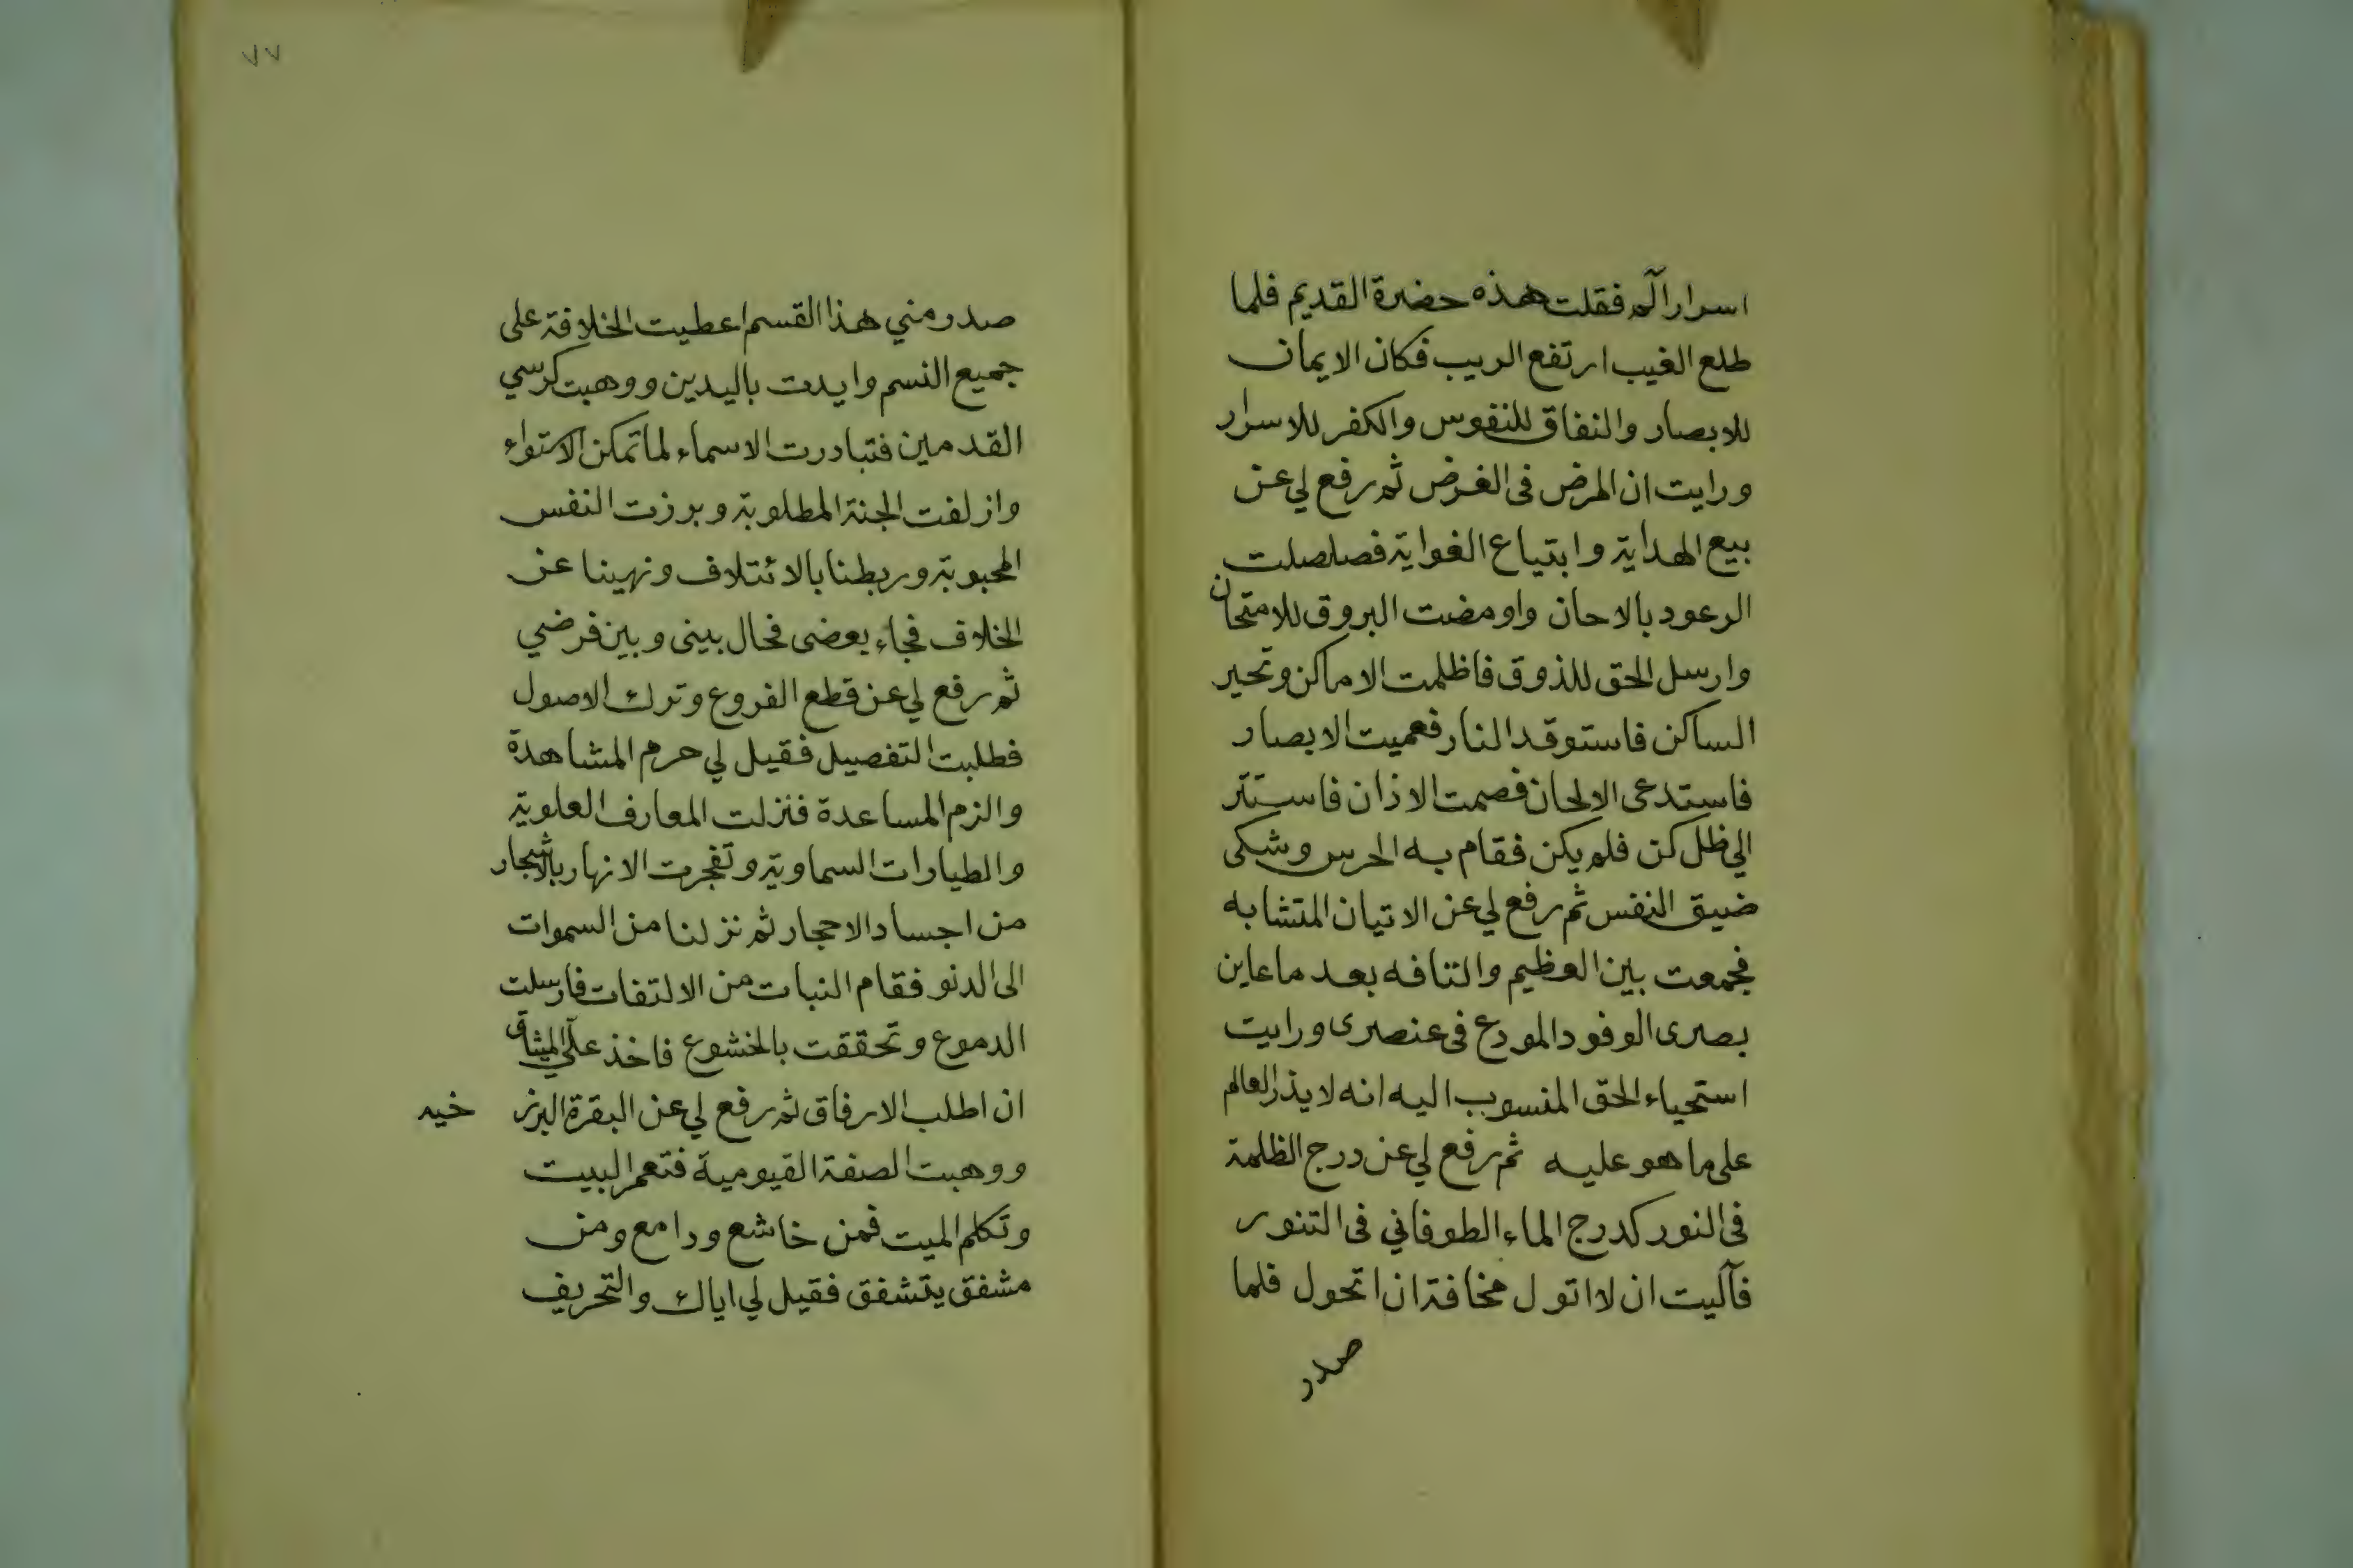 اسرار الٓم فقلت هذه حضرة القديم فلما
طلع الغيب ارتفع الريب فكان الايمان
للابصار والنفاق للنفوس والكفر للاسرار
ورايت ان المرض فى الغرض ثم رفع لي عن
بيع الهداية وابتياع الغواية فصلصلت
الرعود بالاحان واومضت البروق للامتحان
وارسل الحق للذوق فاظلمت الاماكن وتحير
الساكن فاستوقد النار فعميت الابصار
فاستدعى الالحان فصمت الاذان فاستتر
الي ظل كن فلم يكن فقام به الحرس وشكى
ضيق النفس ثم رفع لي عن الاتيان المتشابه
فجمعت بين العظيم والتافه بعد ما عاين
بصرى الوفود المودع فى عنصرى ورايت
استحياء الحق المنسوب اليه انه لا يذر العالم
على ما هو عليه ثم رفع لي عن درج الظلمة
فى النور كدرج الماء الطوفاني فى التنور
فآليت ان لا اتول مخافة ان اتحول فلما
صدر
٧٧
صدر مني هذا القسم اعطيت الخلافة على
جميع النسم وايدت باليدين ووهبت كرسي
القدمين فتبادرت الاسماء لما تمكن الاستواء
وازلفت الجنة المطلوبة وبرزت النفس
المحبوبة وربطنا بالائتلاف ونهينا عن
الخلاف فجاء بعضى فحال بينى وبين فرضي
ثم رفع لي عن قطع الفروع وترك الاصول
فطلبت التفصيل فقيل لي حرم المشاهدة
والزم المساعدة فنزلت المعارف العلوية
والطيارات السماوية وتفجرت الانهار بالاشجار
من اجساد الاحجار ثم نزلنا من السموات
الى الدنو فقام النبات من الالتفات فارسلت
الدموع وتحققت بالخشوع فاخذ علىّ الميثاق
ان اطلب الارفاق ثم رفع لي عن البقرة البرز
خيه
ووهبت الصفة القيومية فتعمر البيت
وتكلم الميت فمن خاشع ودامع ومن
مشفق يتشفق فقيل لي اياك والتحريف